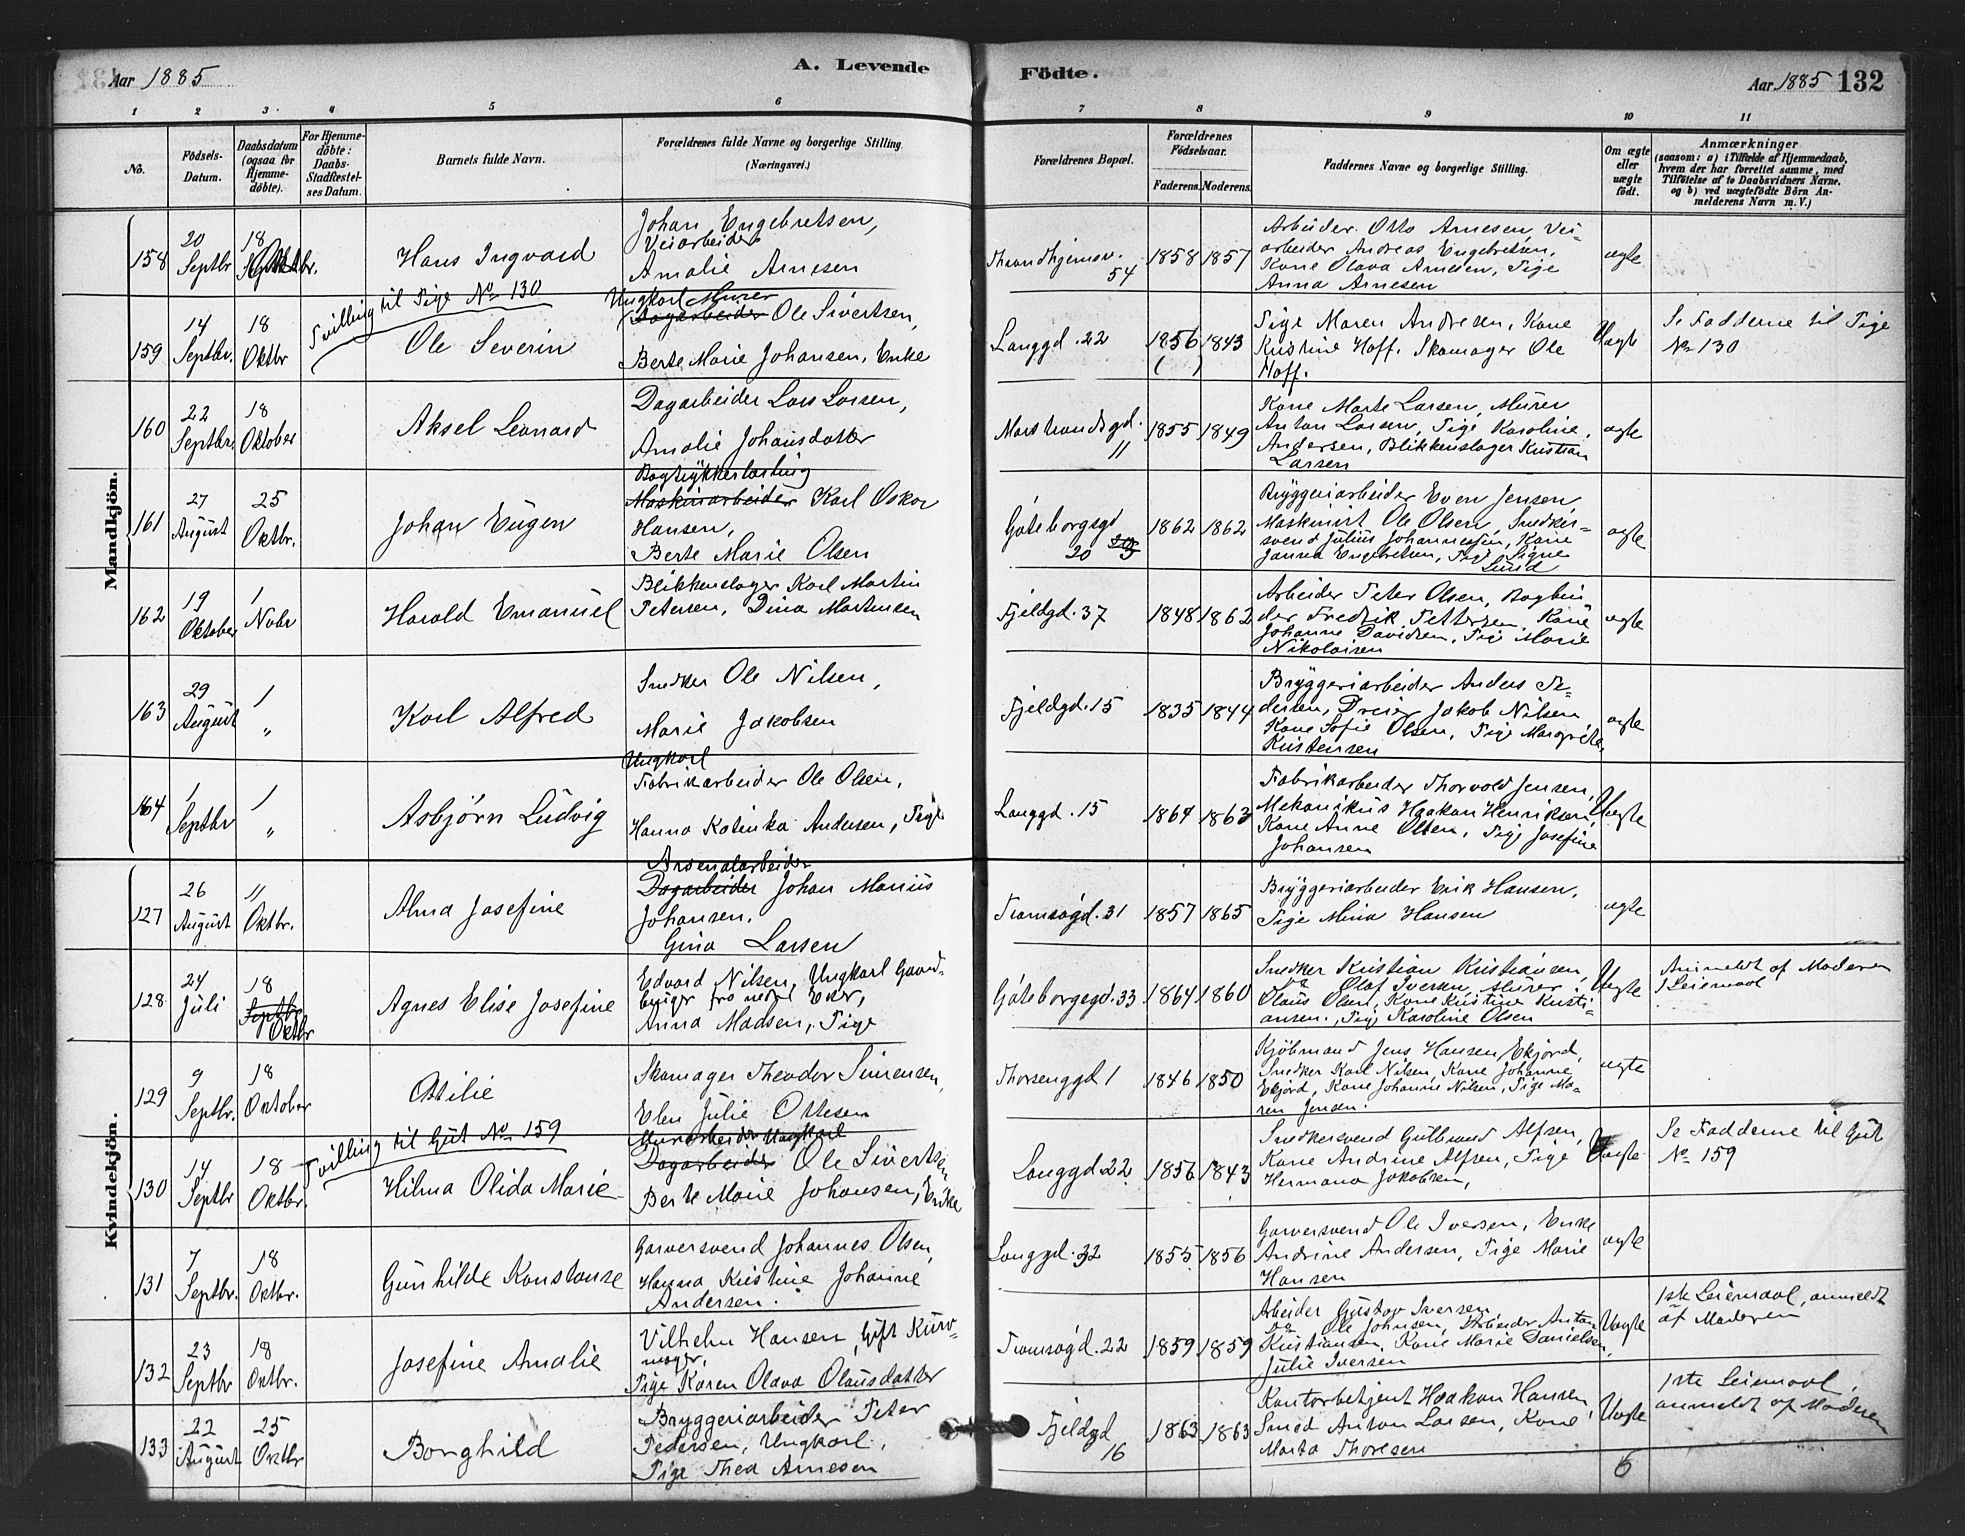 Aar 1885
A. Levende
Födte.
Aar 1885 132
1 2 3 4 5 6 7 8 9 10 11
No.
Födsels-
Datum.
Daabsdatum
(ogsaa for
Hjemme-
döbte).
For Hjemme-
döbte:
Daabs-
Stadfæstel-
ses Datum.
Barnets fulde Navn.
Forældrenes fulde Navne og borgerlige Stilling.
(Næringsvei.)
Forældrenes Bopæl.
Forældrenes
Födselsaar.
Faderens. Moderens.
Faddernes Navne og borgerlige Stilling.
Om ægte
eller
uægte
födt.
Anmærkninger
(saasom: a) i Tilfælde af Hjemmedaab,
hvem der har forrettet samme, med
Tilföielse af to Daabsvidners Navne.
og b) ved uægtefödte Börn An-
melderens Navn m. V.)
Mandkjön.
158
20
Septbr
18
Oktbr.
Hans Ingvard
Johan Engebretsen,
Veiarbeider
Amalie Arnesen
Throndhjemsv.
54
1858 1857
Arbeider Otto Arnesen, Vei-
arbeider Andreas Engebretsen,
Kone Olava Arnesen, Pige
Anna Arnesen
ægte
159
14
Septbr.
18
Oktbr
Tvilling til Pige No 130
Ole Severin
Ungkarl Murer
Dagarbeider Ole Sivertsen,
Berte Marie Johansen, Enke
Langgd. 22
1856 1843
Pige Maren Andresen, Kone
Kristine Hoff. Skomager Ole
Hoff.
Uægte
Se Fadderne til Pige
No 130
160
22
Septbr.
18
Oktober
Aksel Leonard
Dagarbeider Lars Larsen,
Amalie Johansdatter
Marstrandsgd.
11
1855 1849
Kone Marte Larsen, Murer
Anton Larsen, Pige Karoline
Andersen, Blikkenslager Kristian
Larsen
ægte
161
27
August
25
Oktbr.
Johan Eugen
Bogtrykkerlærling
Maskinarbeider Karl Oskar
Hansen,
Berte Marie Olsen
Göteborgsgd
20
1862 1862
Bryggeriarbeider Even Jensen
Maskinist Ole Olsen, Snedker-
svend Julius Johannessen, Kone
Janna Engebretsen, Pige Signe
Lund
ægte
162
19
Oktober
1
Novbr
Harald Emanuel
Blikkenslager Karl Martin
Petersen, Dina Martensen
Fjeldgd. 37
1848 1862
Arbeider Peter Olsen, Bogbin
der Fredrik Pettersen, Kone
Johanne Davidsen, Pige Marie
Nikolaisen
ægte
163
29
August
1
"
Karl Alfred
Snedker Ole Nilsen,
Marie Jakobsen
Fjeldgd. 15
1835 1844
Bryggeriarbeider Anders Pe-
dersen, Dreier Jakob Nilsen
Kone Sofie Olsen, Pige Margrete
Kristensen
ægte
164
1
Septbr
1
"
Asbjørn Ludvig
Ungkarl
Fabrikarbeider Ole Olsen,
Hanna Katinka Andersen, Pige
Langgd. 15
1864 1863
Fabrikarbeider Thorvald Jensen,
Mekanikus Haakon Henriksen,
Kone Anne Olsen, Pige Josefine
Johansen
Uægte
Kvindekjön.
127
26
August
11
Oktbr.
Alma Josefine
Arsenalarbeider
Dagarbeider Johan Marius
Johansen,
Gina Larsen
Tromsøgd. 31
1857 1865
Bryggeriarbeider Erik Hansen,
Pige Mina Hansen
ægte
128
24
Juli
18
Septbr
Oktbr
Agnes Elise Josefine
Edvard Nilsen, Ungkarl Gaard-
bruger fra nedre Eker,
Anna Madsen, Pige
Göteborgsgd. 33
1864 1860
Snedker Kristian Kristiansen,
do Olaf Iversen, Murer
Olaus Olsen, Kone Kristine Kristi-
ansen, Pige Karoline Olsen
Uægte
Anmeldt af Moderen
1 Leiemaal
129
9
Septbr.
18
Oktober
Otilie
Skomager Theodor Simensen,
Elen Julie Ottesen
Thorsenggd 1
1846 1850
Kjøbmand Jens Hansen Ekjord,
Snedker Karl Nilsen, Kone Johanne
Ekjord, Kone Johanne Nilsen, Pige Ma-
ren Jensen.
ægte
130
14
Septbr
18
Oktbr.
Tvilling til Gut No 159
Hilma Olida Marie
Murarbeider Ungkarl
Dagarbeider Ole Sivertsen
Berte Marie Johansen, Enke
Langgd. 22
1856 1843
Snedkersvend Gulbrand Alfsen,
Kone Andrine Alfsen, Pige
Hermana Jakobsen,
Uægte
Se Fadderne til Gut
No 159
131
7
Septbr.
18
Oktbr.
Gunhilde Konstanse
Garversvend Johannes Olsen,
Hanna Kristine Johanne
Andersen.
Langgd. 32
1855 1856
Garversvend Ole Iversen, Enke
Andrine Andersen, Pige Marie
Hansen
ægte
132
23
Septbr
18
Oktbr.
Josefine Amalie
Vilhelm Hansen, Gift Kurv-
mager,
Pige Karen Olava Olausdatter
Tromsøgd. 22
1859 1859
Arbeider Gustav Iversen
do Ole Johnsen, Arbeider Anton
Kristiansen, Kone Marie Danielsen,
Julie Iversen
Uægte
1ste Leiemaal, anmeldt
af Moderen
133
22
August
25
Oktbr
Borghild
Bryggeriarbeider Peter
Pedersen, Ungkarl,
Pige Thea Arnesen
Fjeldgd
16
1863 1863
Kontorbetjent Haakon Hansen,
Smed Anton Larsen, Kone
Marta Thoresen
Uægte
1ste Leiemaal,
anmeldt af Moderen
6